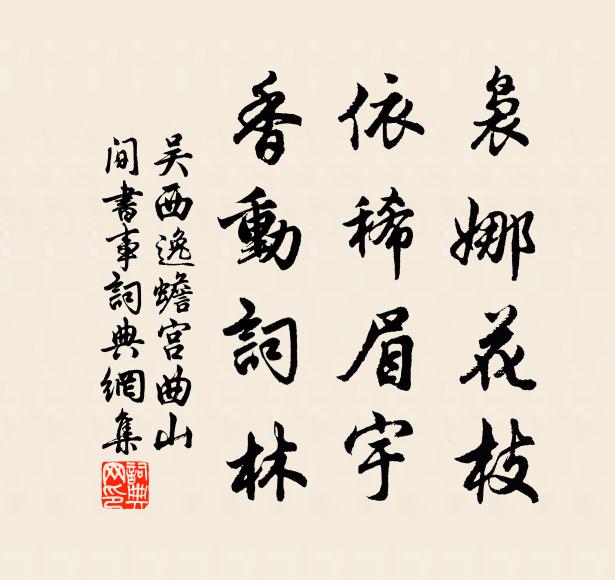 裊娜花枝
依稀眉宇
香動詞林
吴西逸蟾宫曲山
间書事詞典網集
詞典网印